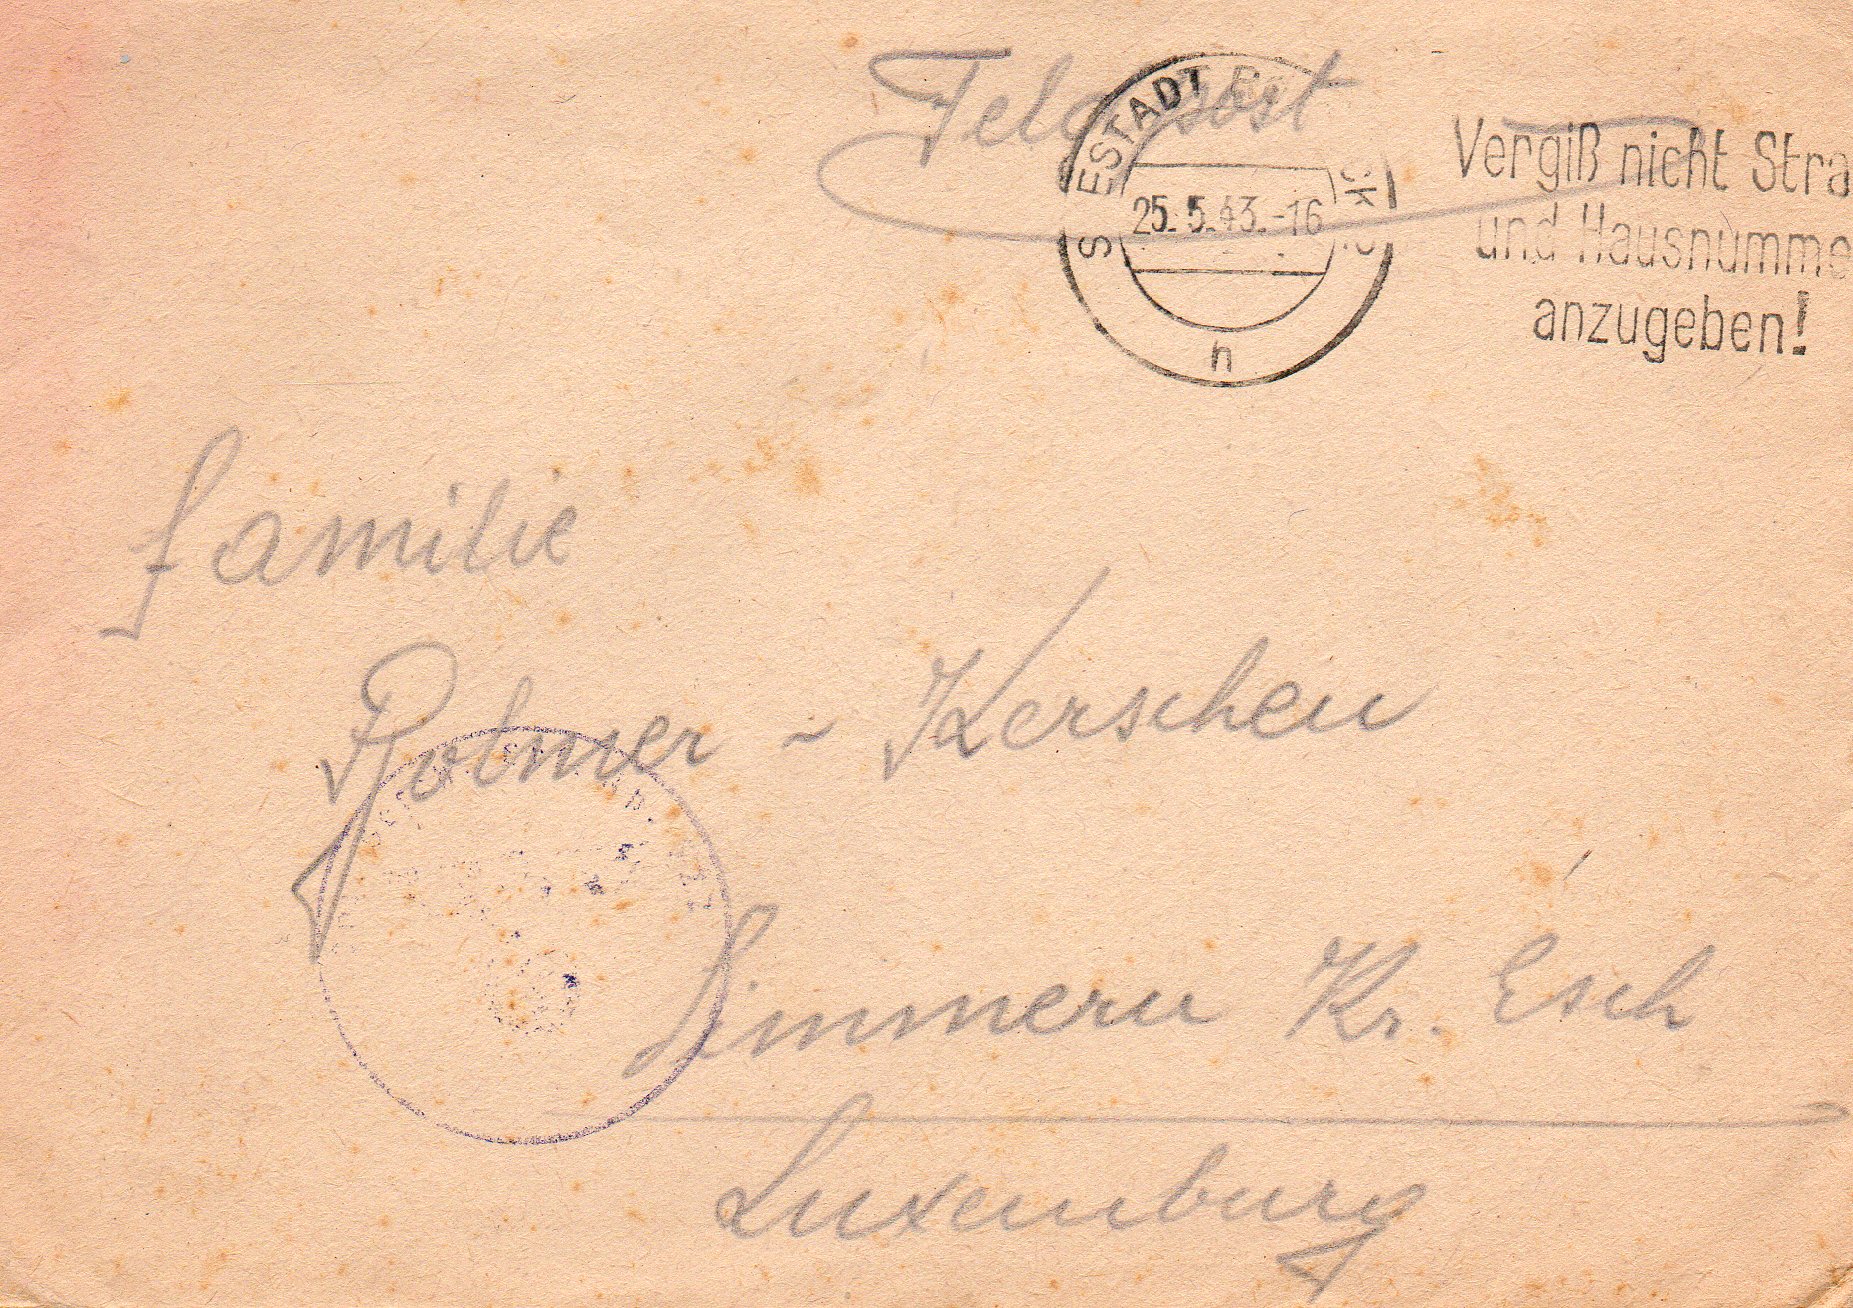 Feldpost
25.5.43.-16
n
Vergiß nicht Stra
und Hausnumme
anzugeben!
Familie
Bolmer - Kerschen
Simmern Kr. Esch
Luxemburg